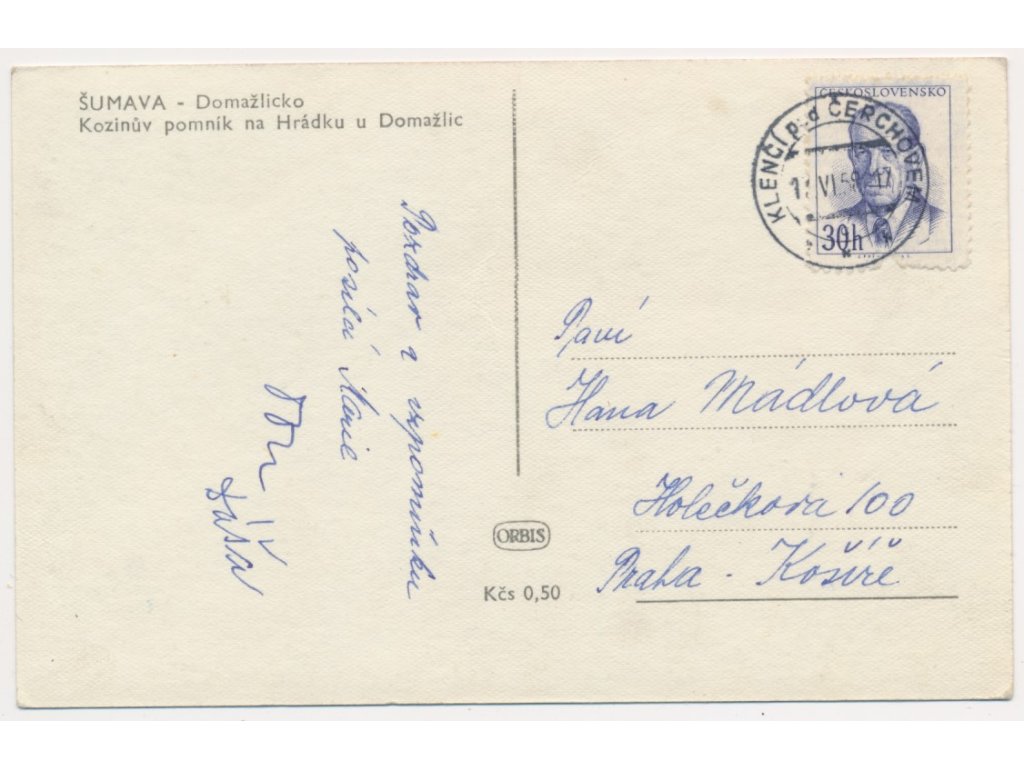 ŠUMAVA - Domažlicko
Kozinův pomník na Hrádku u Domažlic
ČESKOSLOVENSKO
KLENČÍ p. d ČERCHOVEM
VI 59 - 17
30h
Pozdrav z vzpomínku
posílá Marie
Dáša
Paví
Hana Mádlová
Holečkova 100
Praha - Košíře
ORBIS
Kčs 0,50